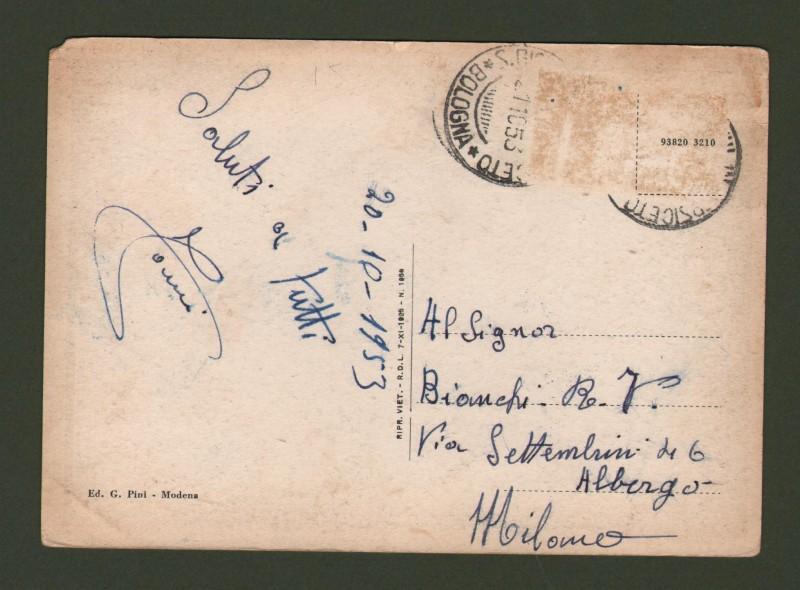 Saluti a
tutti
20-10-1953
BOLOGNA
SICETO
93820 3210
RIPR. VIET. - R.D.L. 7-XI-1925 - N. 1950
Al Signor
Bianchi R. V.
Via Settembrini 6
Albergo
Milano
Ed. G. Pini - Modena